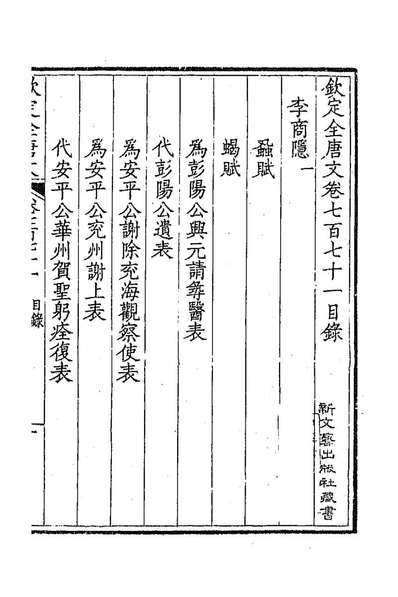 欽定全唐文卷七百七十一目錄
李商隱一
蝨賦
蝎賦
爲彭陽公興元請尋醫表
代彭陽公遺表
爲安平公謝除兗海觀察使表
爲安平公兗州謝上表
代安平公華州賀聖躬痊復表
目錄
新文藝出版社藏書